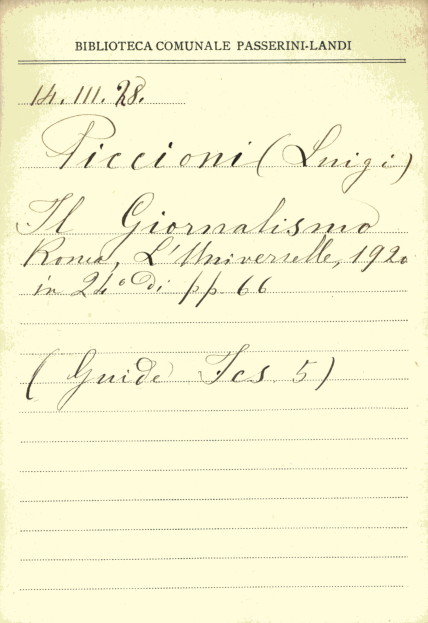 BIBLIOTECA COMUNALE PASSERINI-LANDI
14. III. 28.
Piccioni (Luigi)
Il Giornalismo
Roma, L'Universelle, 1920
in 24° di pp. 66
(Guide Ics 5)